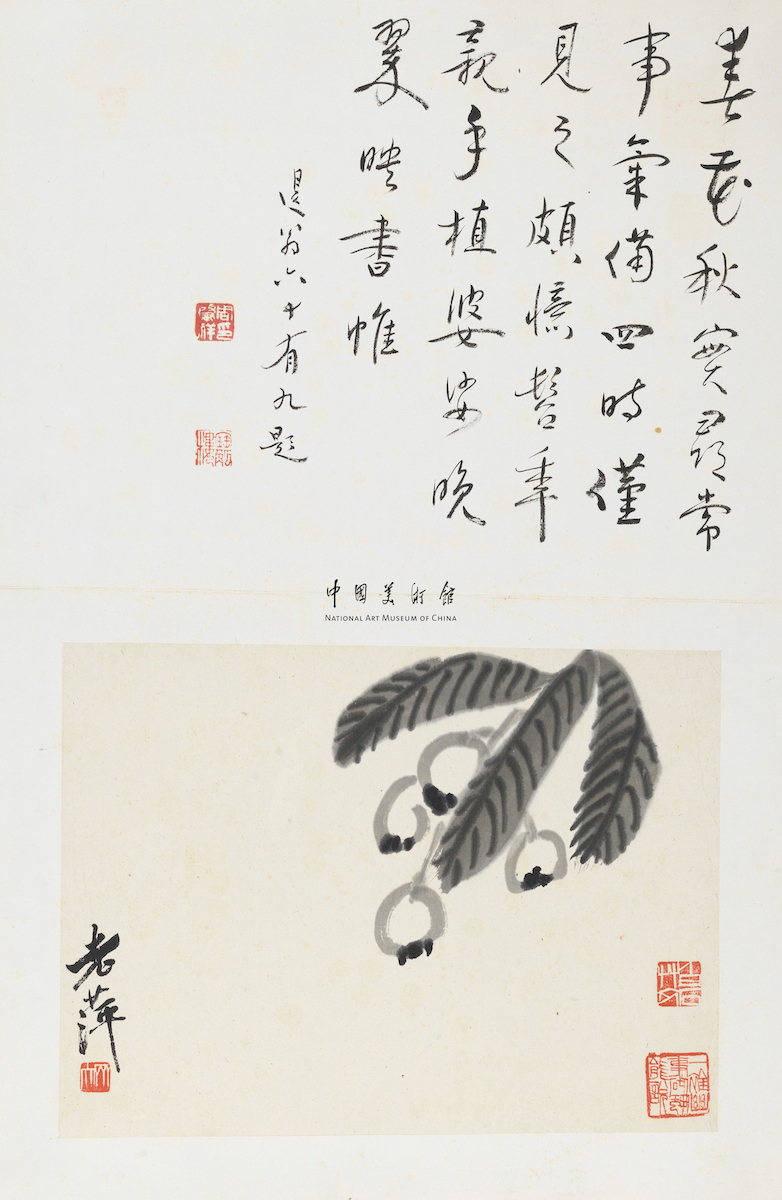 春花秋實尋常
事氣備四時僅
見之頗憶髫年
親手植婆娑晚
翠映書帷
退翁六十有九題
周印肇祥
中国美術館
NATIONAL ART MUSEUM OF CHINA
老萍